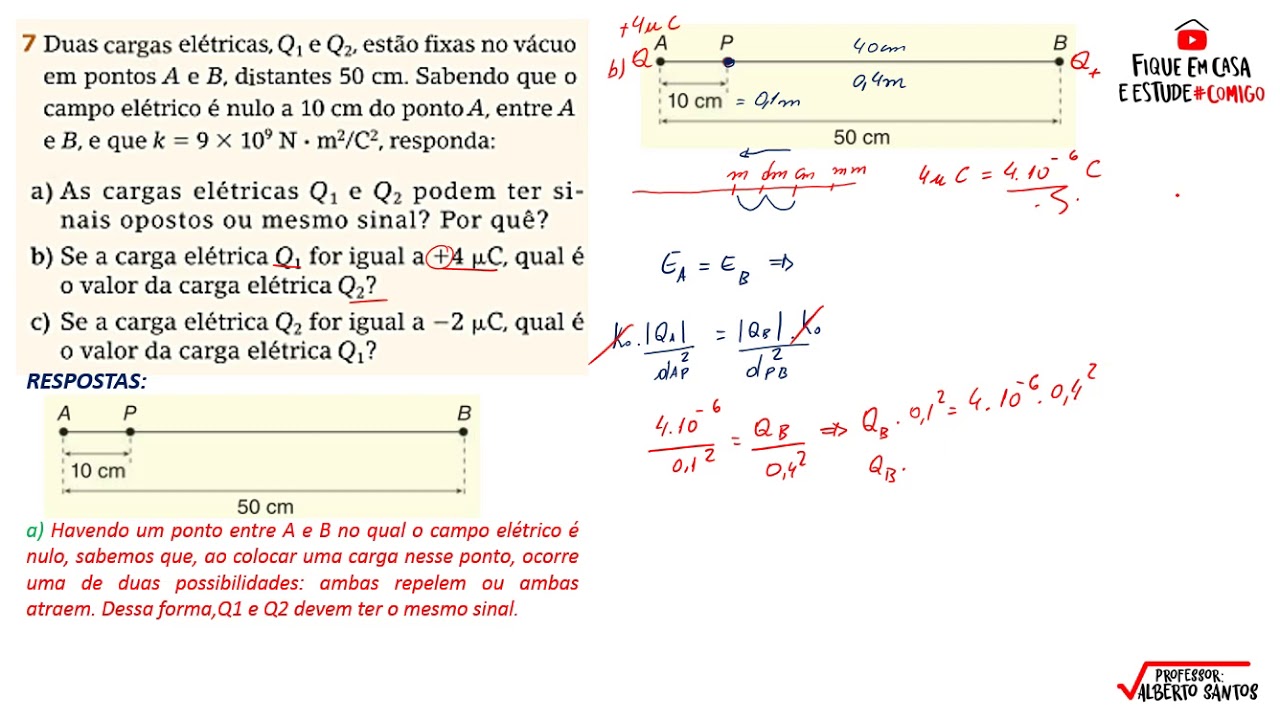 7 Duas cargas elétricas, Q₁ e Q₂, estão fixas no vácuo
em pontos A e B, distantes 50 cm. Sabendo que o
campo elétrico é nulo a 10 cm do ponto A, entre A
e B, e que k = 9 × 10⁹ N · m²/C², responda:
a) As cargas elétricas Q₁ e Q₂ podem ter si-
nais opostos ou mesmo sinal? Por quê?
b) Se a carga elétrica Q₁ for igual a +4 μC, qual é
o valor da carga elétrica Q₂?
c) Se a carga elétrica Q₂ for igual a −2 μC, qual é
o valor da carga elétrica Q₁?
RESPOSTAS:
A P B
10 cm
50 cm
a) Havendo um ponto entre A e B no qual o campo elétrico é
nulo, sabemos que, ao colocar uma carga nesse ponto, ocorre
uma de duas possibilidades: ambas repelem ou ambas
atraem. Dessa forma,Q1 e Q2 devem ter o mesmo sinal.
+4μC
A P 40cm B
b) Q Q+
0,4m
10 cm = 0,1m
50 cm
m dm cm mm
4μC = 4.10⁻⁶ C
E_A = E_B ⇒
K₀.|Q_A| / d_AP² = |Q_B|.K₀ / d_PB²
4.10⁻⁶ / 0,1² = Q_B / 0,4² ⇒ Q_B . 0,1² = 4.10⁻⁶ . 0,4²
Q_B .
FIQUE EM CASA
E ESTUDE#COMIGO
PROFESSOR:
ALBERTO SANTOS